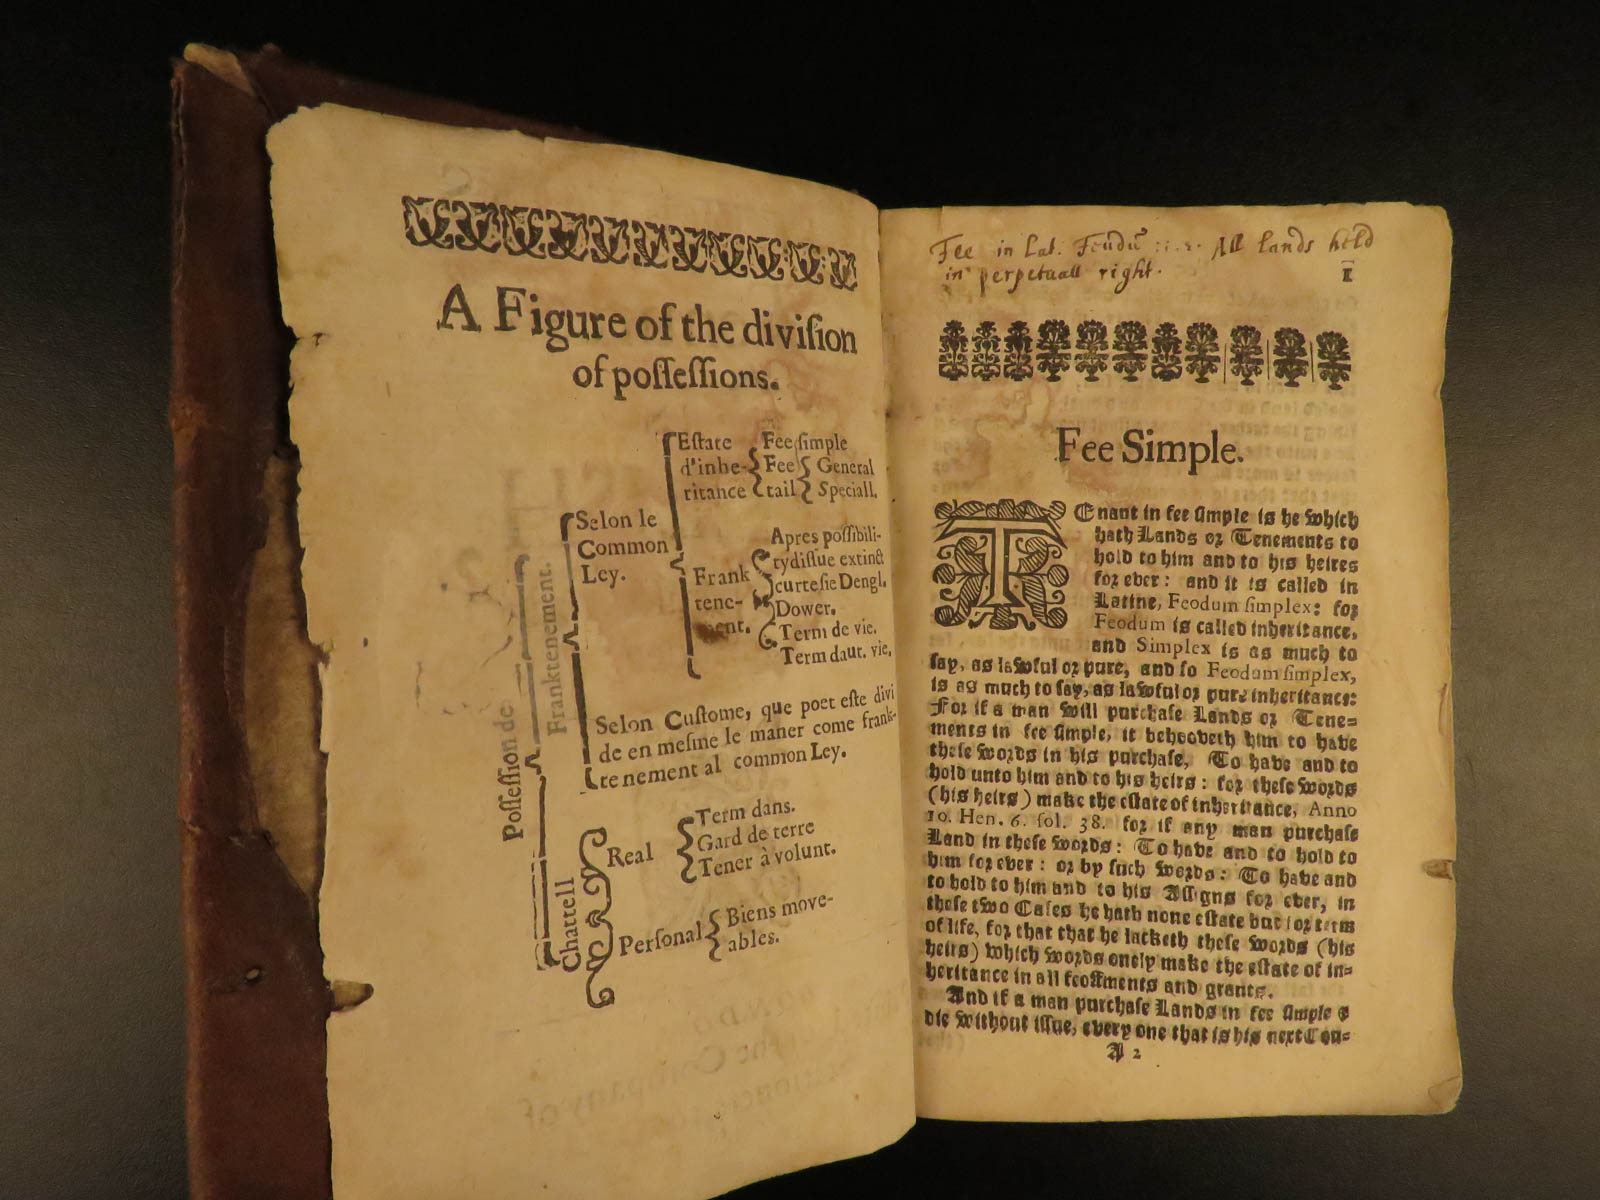 A Figure of the diviſion
of poſſeſſions.
Poſſeſſion de
Franktenement.
Selon le
Common
Ley.
Eſtate
d'inhe-
ritance
Fee ſimple
Fee
tail
General
Speciall.
Frank
tene-
ment.
Apres poſſibili-
tydiſſue extinct
curteſie Dengl.
Dower.
Term de vie.
Term daut. vie,
Selon Cuſtome, que poet eſte divi
de en meſme le maner come frank-
te nement al common Ley.
Chattell
Real
Term dans.
Gard de terre
Tener à volunt.
Perſonal
Biens move-
ables.
Fee in Lat. Feudū All lands held
in perpetuall right.
1
Fee Simple.
TEnant in fee ſimple is he which
hath Lands or Tenements to
hold to him and to his heires
for ever: and it is called in
Latine, Feodum ſimplex: for
Feodum is called inheritance,
and Simplex is as much to
ſay, as lawful or pure, and ſo Feodum ſimplex,
is as much to ſay, as lawful or pure inheritance:
For if a man will purchaſe Lands or Tene-
ments in fee ſimple, it behooveth him to have
theſe words in his purchaſe, To have and to
hold unto him and to his heirs: for theſe words
(his heirs) make the eſtate of inheritance, Anno
10. Hen. 6. fol. 38. for if any man purchaſe
Land in theſe words: To have and to hold to
him for ever: or by ſuch words: To have and
to hold to him and to his Aſſigns for ever, in
theſe two Caſes he hath none eſtate but for term
of life, for that that he lacketh theſe words (his
heirs) which words onely make the eſtate of in-
heritance in all feoffments and grants.
And if a man purchaſe Lands in fee ſimple &
die without iſſue, every one that is his next Cou-
A 2